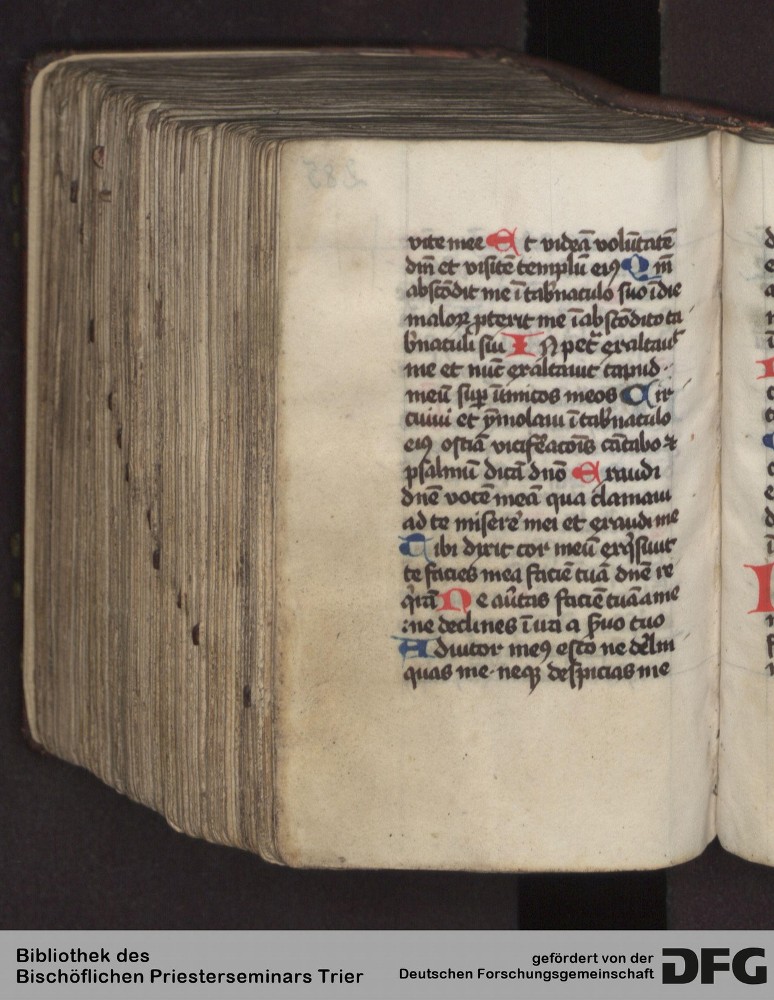 vite mee Et videā volūtatē
dn̄i et visitē templū ei⁹ Qm̄
abscōdit me ī tab̄naculo suo ī die
maloꝝ ꝓterit me ī abscōdito ta
b̄naculi sui In pet͛ exaltauit
me et nūc exaltauit capud
meū sup īimicos meos Cir
cuiui et ymolaui ī tab̄naculo
ei⁹ ostiā vocif̄eacōis cātabo ⁊
psalmū dicā dn̄o Exaudi
dn̄e vocē meā qua clamaui
ad te miserē mei et exaudi me
Tibi dixit cor meū exq̄siuit
te facies mea faciē tuā dn̄e re
q̄rā Ne au̾tas faciē tuā a me
ne declines ī ira a s̄uo tuo
Adiutor me⁹ esto ne dēlin
quas me neqꝫ despicias me
Bibliothek des
Bischöflichen Priesterseminars Trier
gefördert von der
Deutschen Forschungsgemeinschaft DFG